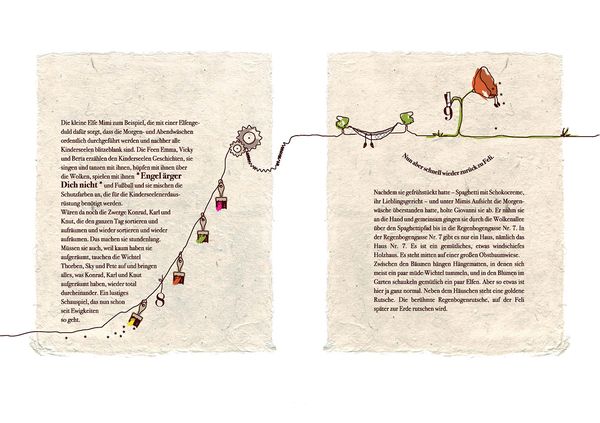 Die kleine Elfe Mimi zum Beispiel, die mit einer Elfenge-
duld dafür sorgt, dass die Morgen- und Abendwäschen
ordentlich durchgeführt werden und nachher alle
Kinderseelen blitzeblank sind. Die Feen Emma, Vicky
und Berta erzählen den Kinderseelen Geschichten, sie
singen und tanzen mit ihnen, hüpfen mit ihnen über
die Wolken, spielen mit ihnen "Engel ärger
Dich nicht" und Fußball und sie mischen die
Schutzfarben an, die für die Kinderseelenerdaus-
rüstung benötigt werden.
Wären da noch die Zwerge Konrad, Karl und
Knut, die den ganzen Tag sortieren und
aufräumen und wieder sortieren und wieder
aufräumen. Das machen sie stundenlang.
Müssen sie auch, weil kaum haben sie
aufgeräumt, tauchen die Wichtel
Thorben, Sky und Pete auf und bringen
alles, was Konrad, Karl und Knut
aufgeräumt haben, wieder total
durcheinander. Ein lustiges
Schauspiel, das nun schon
seit Ewigkeiten
so geht.
8
9
Nun aber schnell wieder zurück zu Feli.
Nachdem sie gefrühstückt hatte – Spaghetti mit Schokocreme,
ihr Lieblingsgericht – und unter Mimis Aufsicht die Morgen-
wäsche überstanden hatte, holte Giovanni sie ab. Er nahm sie
an die Hand und gemeinsam gingen sie durch die Wolkenallee
über den Spaghettipfad bis in die Regenbogengasse Nr. 7. In
der Regenbogengasse Nr. 7 gibt es nur ein Haus, nämlich das
Haus Nr. 7. Es ist ein gemütliches, etwas windschiefes
Holzhaus. Es steht mitten auf einer großen Obstbaumwiese.
Zwischen den Bäumen hängen Hängematten, in denen sich
meist ein paar müde Wichtel tummeln, und in den Blumen im
Garten schaukeln gemütlich ein paar Elfen. Aber so etwas ist
hier ja ganz normal. Neben dem Häuschen steht eine goldene
Rutsche. Die berühmte Regenbogenrutsche, auf der Feli
später zur Erde rutschen wird.